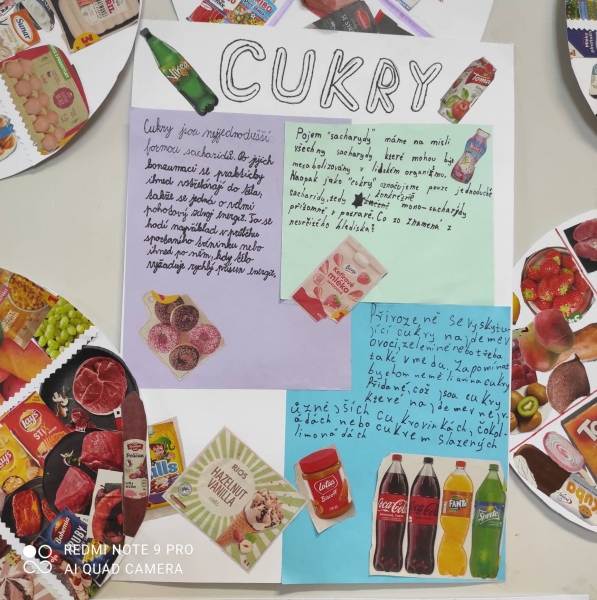 CUKRY
Cukry jsou nejjednodušší
formou sacharidů. Po jejich
konzumaci se prakticky
ihned vstřebávají do těla,
takže se jedná o velmi
pohotový zdroj energie. To se
hodí například v průběhu
sportovního tréninku nebo
ihned po něm, kdy tělo
vyžaduje rychlý přísun energie.
Pojem "sacharidy" máme na mysli
všechny sacharidy které mohou být
metabolizovány v lidském organizmu.
Naopak jako "cukry" označujeme pouze jednoduché
sacharidy, tedy konkrétně mono-sacharidy
přítomné v potravě. Co to znamená z
nutričního hlediska?
Přirozeně se vyskytu-
jící cukry najdeme v
ovoci, zelenině nebo třeba
také v medu. Zapomínat
bychom neměli ani na cukry
Přidané, což jsou cukry
které najdeme v
různých
nebo cukrovinkách, čokol-
limonádách cukrem slazených
Nikea
Toma
Kefírové
mléko
RIOS
HAZELNUT
VANILLA
Lotus
Biscoff
Coca-Cola
Coca-Cola
FANTA
Sprite
Sunar
Lay's
Lay's
Bohemia
REDMI NOTE 9 PRO
AI QUAD CAMERA